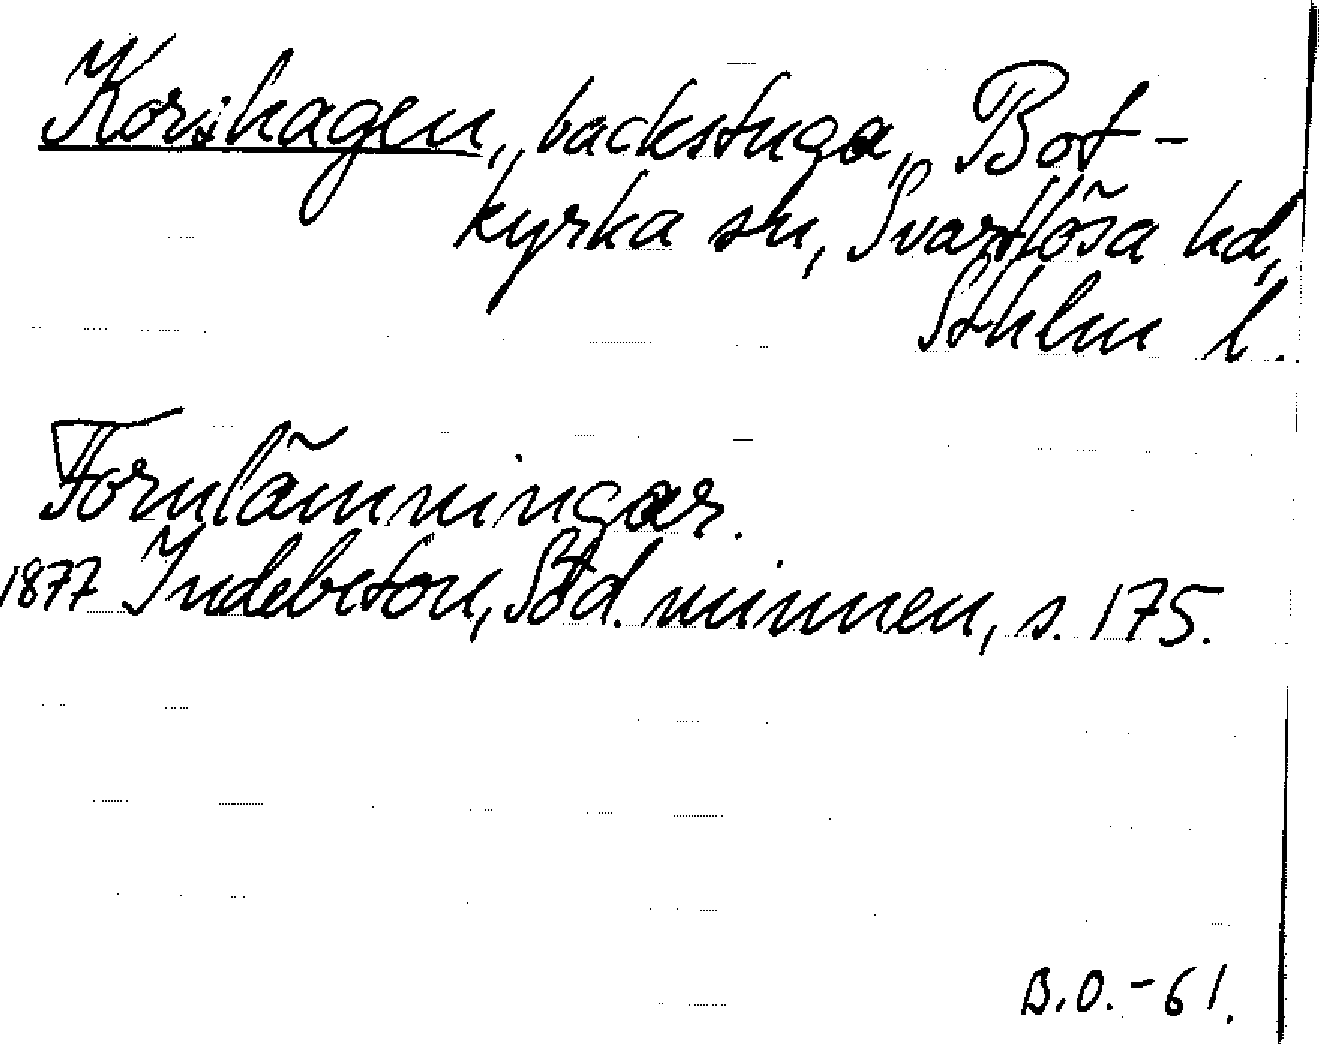 Korshagen, backstuga, Bot-
kyrka sn, Svartlösa hd,
Sthlm l.
Fornlämningar.
1877 Indebetou, Söd. minnen, s. 175.
B.O.-61.